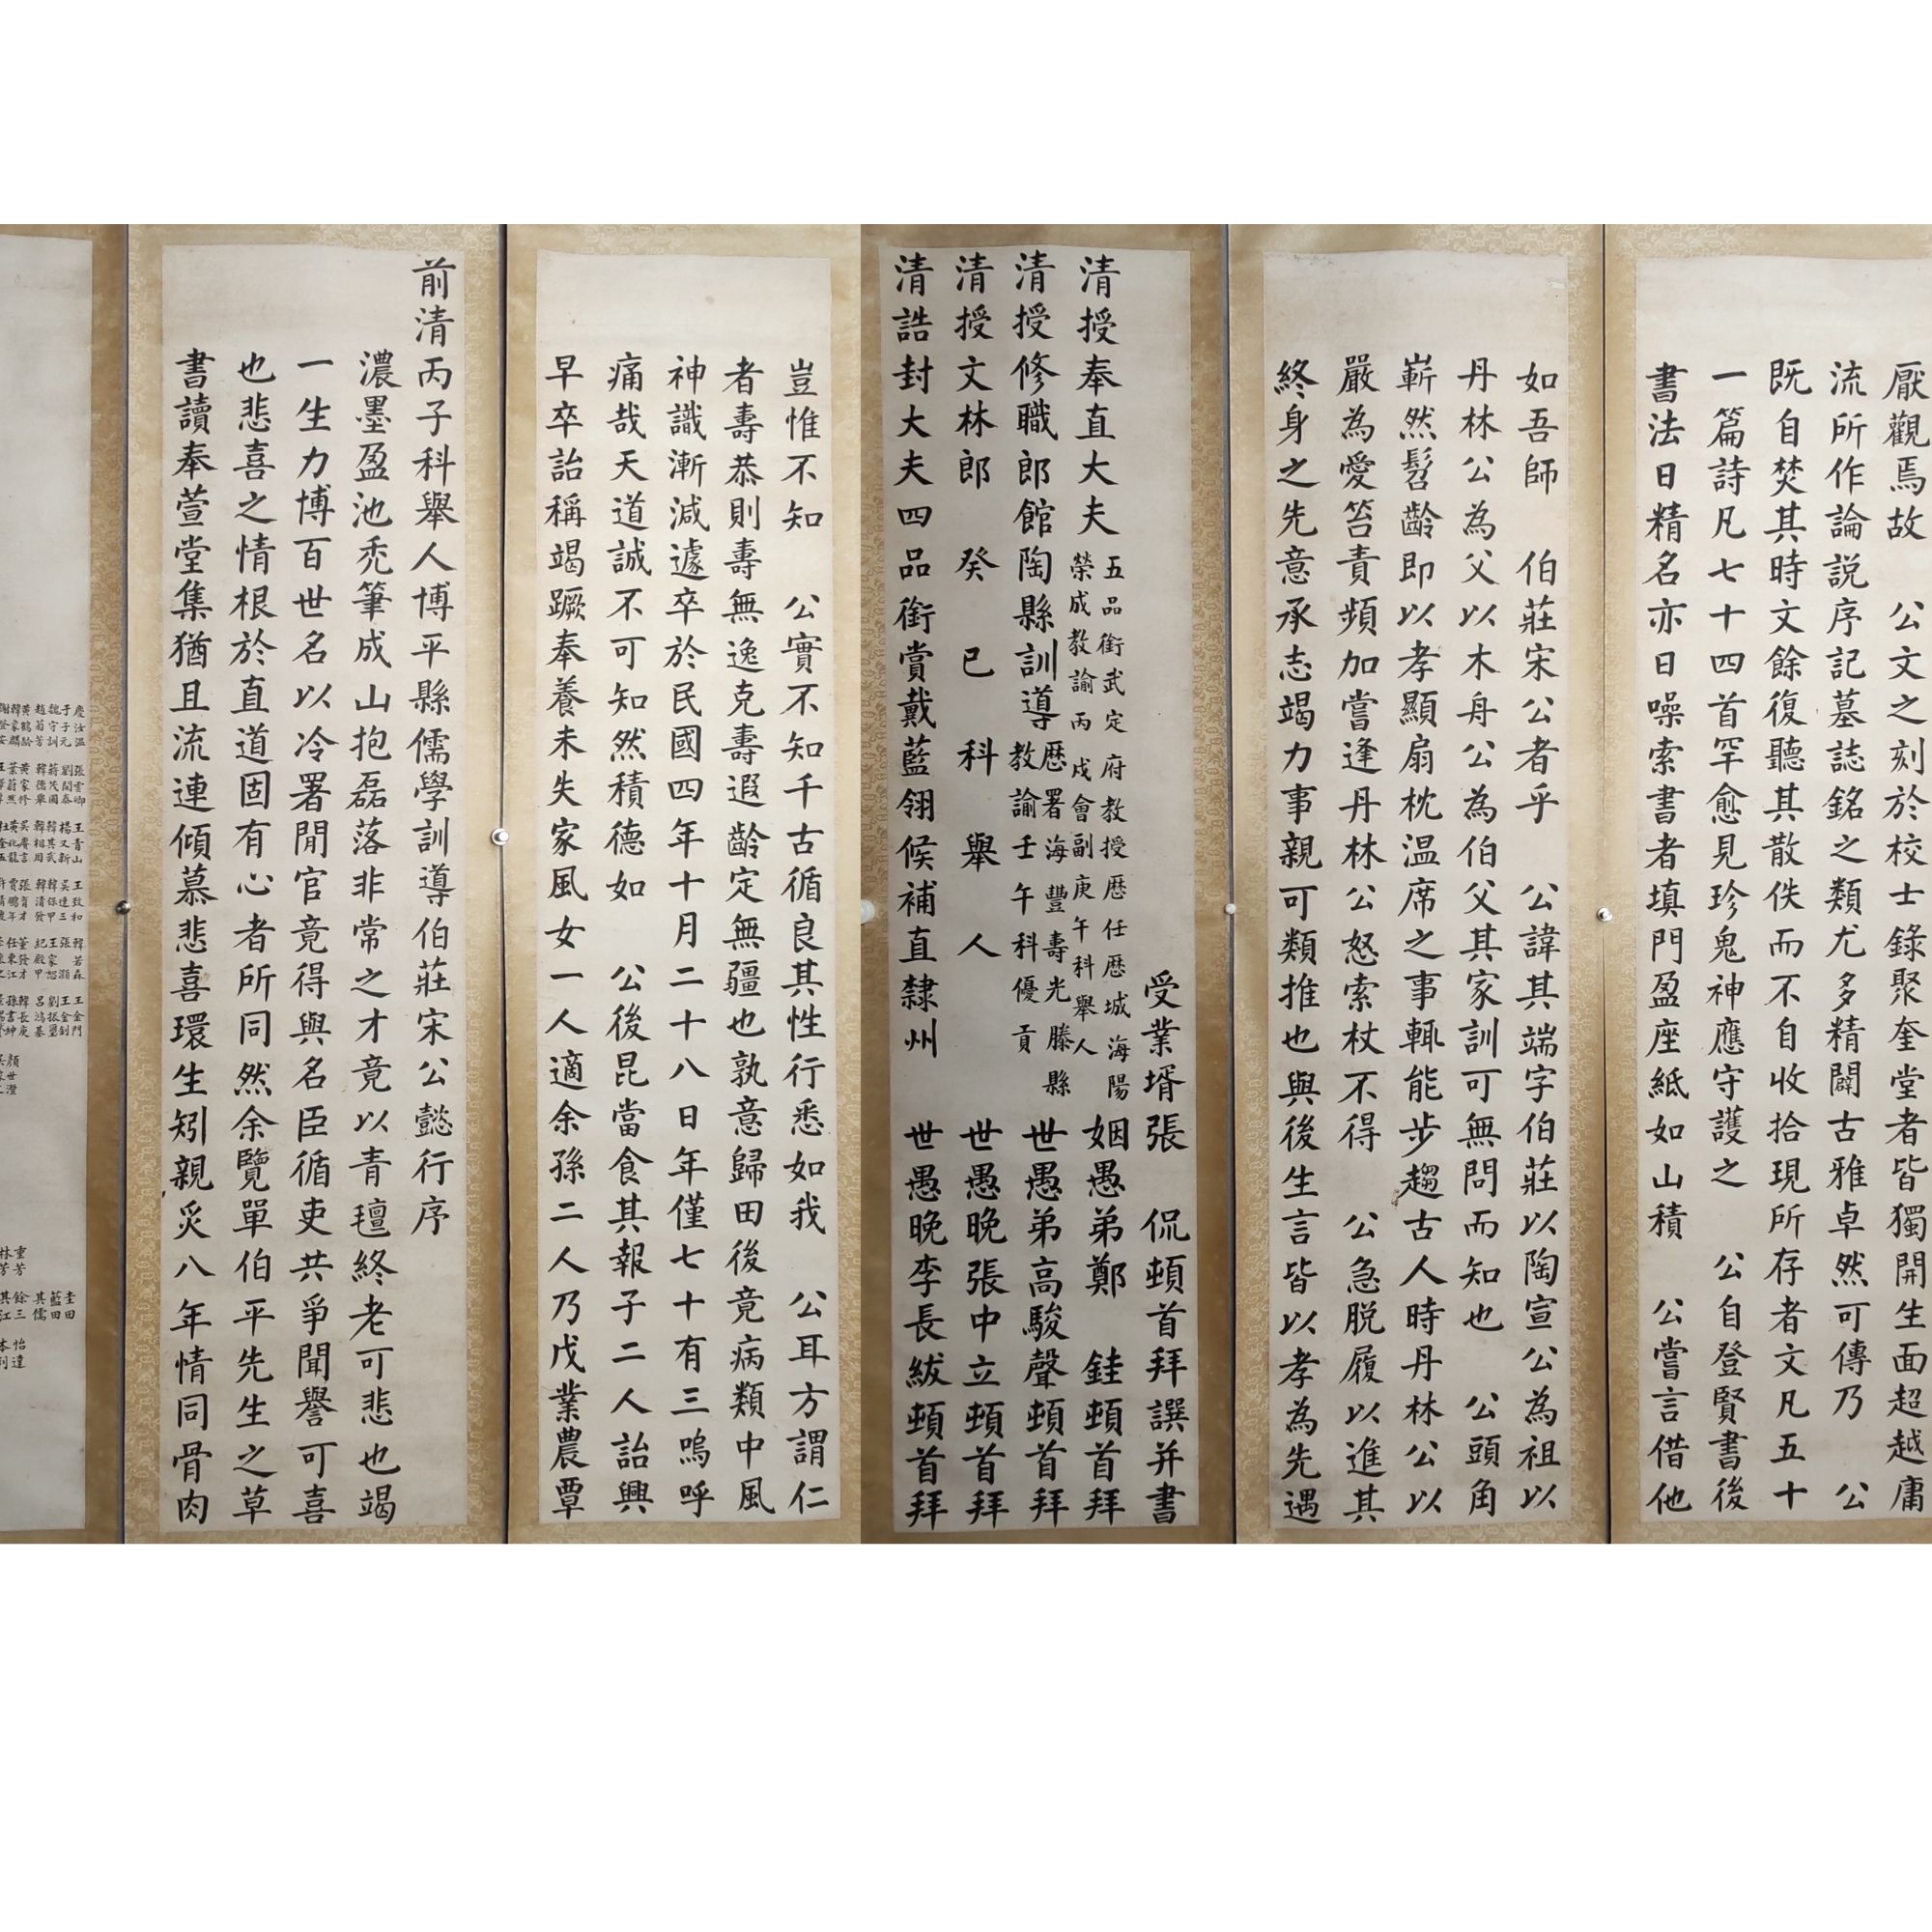 厭觀焉故　公文之刻於校士錄聚奎堂者皆獨開生面超越庸
流所作論説序記墓誌銘之類尤多精闢古雅卓然可傳乃　公
既自焚其時文餘復聽其散佚而不自收拾現所存者文凡五十
一篇詩凡七十四首罕愈見珍鬼神應守護之　公自登賢書後
書法日精名亦日噪索書者填門盈座紙如山積　公嘗言借他
如吾師　伯莊宋公者乎　公諱其端字伯莊以陶宣公為祖以
丹林公為父以木舟公為伯父其家訓可無問而知也　公頭角
嶄然髫齡即以孝顯扇枕温席之事輒能步趨古人時丹林公以
嚴為愛笞責頻加嘗逢丹林公怒索杖不得　公急脱履以進其
終身之先意承志竭力事親可類推也與後生言皆以孝為先遇
受業壻張　侃頓首拜譔并書
清授奉直大夫
五品銜武定府教授歴任歴城海陽
榮成教諭丙戌會副庚午科舉人
姻愚弟鄭　銈頓首拜
清授修職郎館陶縣訓導
歴署海豐壽光滕縣
教諭壬午科優貢
世愚弟高駿聲頓首拜
清授文林郎　癸巳科舉人　世愚晚張中立頓首拜
清誥封大夫四品銜賞戴藍翎候補直隸州　世愚晚李長紱頓首拜
豈惟不知　公實不知千古循良其性行悉如我　公耳方謂仁
者壽恭則壽無逸克壽遐齡定無疆也孰意歸田後竟病類中風
神識漸減遽卒於民國四年十月二十八日年僅七十有三嗚呼
痛哉天道誠不可知然積德如　公後昆當食其報子二人詒興
早卒詒稱竭蹶奉養未失家風女一人適余孫二人乃戊業農覃
前清丙子科舉人博平縣儒學訓導伯莊宋公懿行序
濃墨盈池禿筆成山抱磊落非常之才竟以青氊終老可悲也竭
一生力博百世名以冷署閒官竟得與名臣循吏共爭聞譽可喜
也悲喜之情根於直道固有心者所同然余覽單伯平先生之草
書讀奉萱堂集猶且流連傾慕悲喜環生矧親炙八年情同骨肉
慶汝溫　張雪卿　王青山　王致和　韓若森　王金門　顏世瀅